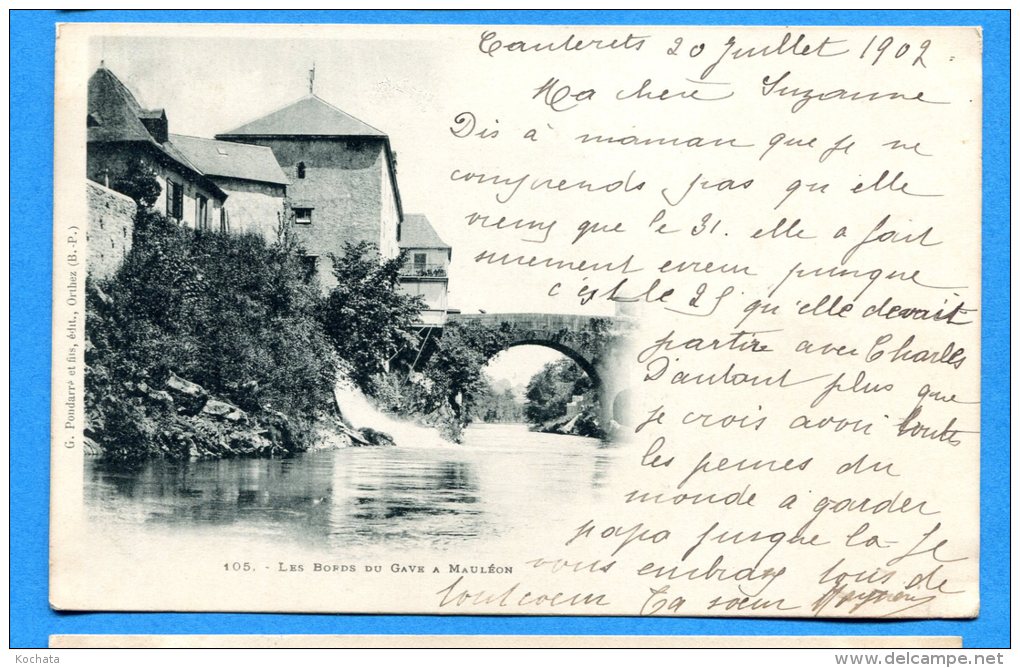 Cauterets 20 Juillet 1902.
Ma chère Suzanne
Dis à maman que je ne
comprends pas qu'elle
vienne que le 31. elle a fait
surement erreur puisque
c'est le 25 qu'elle devait
partire avec Charles
D'autant plus que
je crois avoir toutes
les peines du
monde à garder
papa jusque la - Je
vous embrasse tous de
tout coeur Ta soeur
G. Pondarré et fils, édit., Orthez (B.-P.)
105. - LES BORDS DU GAVE A MAULÉON
Kochata
http://www.delcampe.net